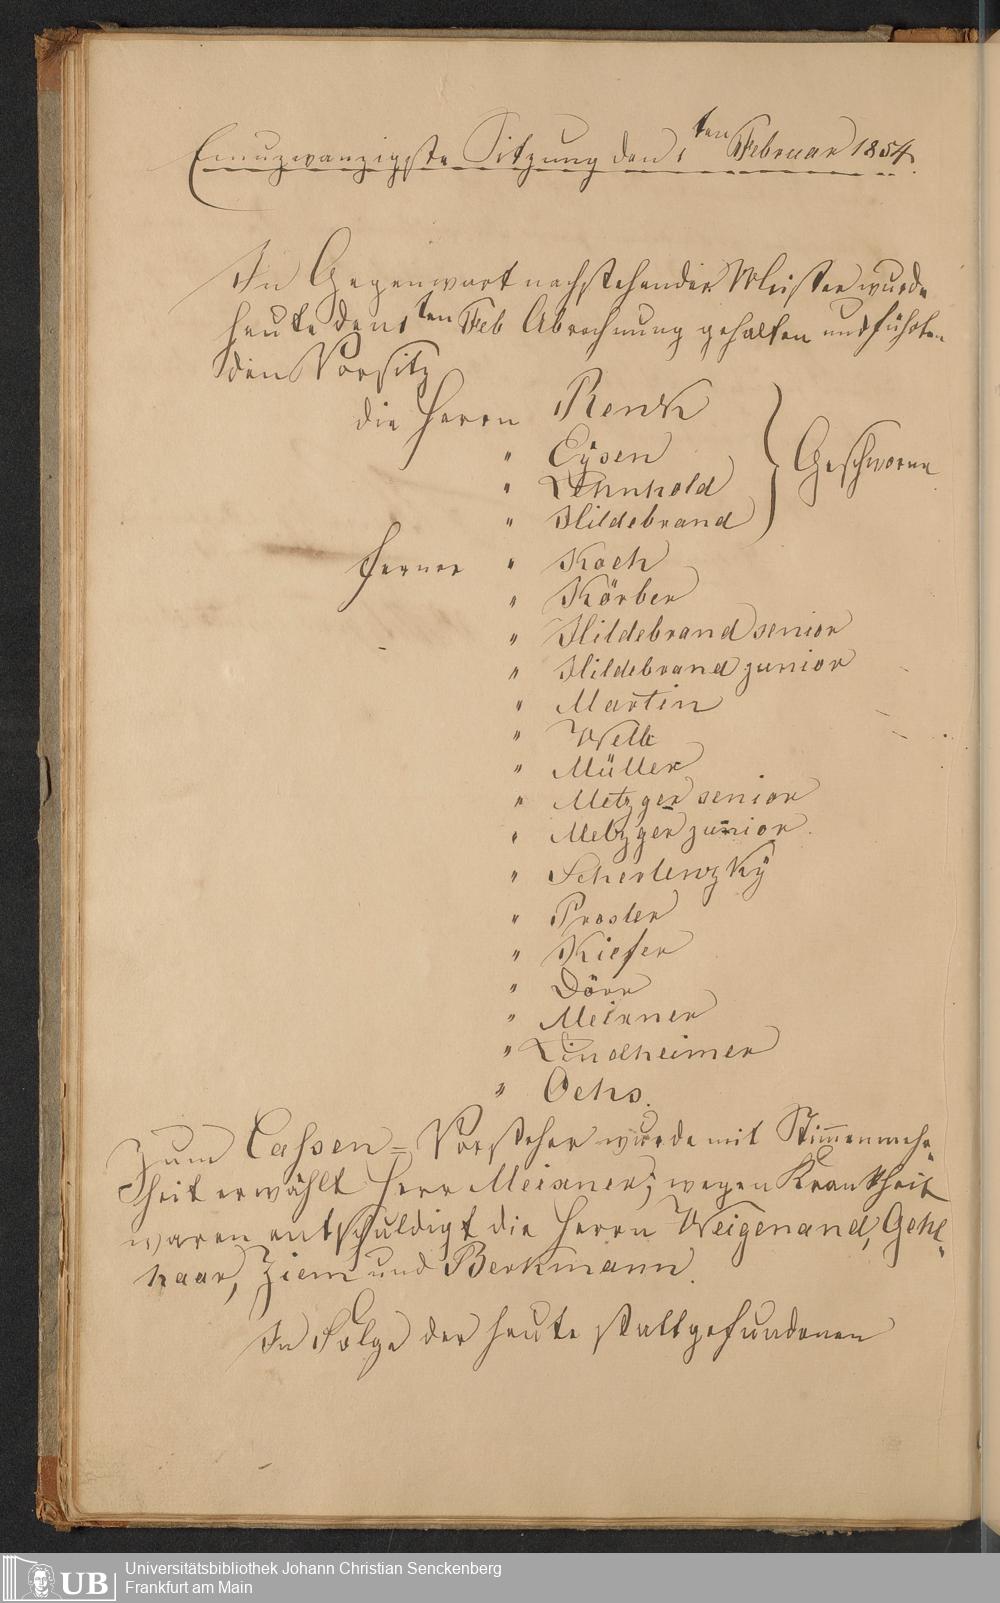 Einuzwanzigste Sitzung den 1ten Februar 1854.
In Gegenwart nachstehender Meister wurde
heute den 1ten Feb Abrechnung gehalten und führten
den Vorsitz
die Herrn Renk
" Eÿsen
" Lehnhold
" Hildebrand
Geschworne
Ferner " Koch
" Körber
" Hildebrand senior
" Hildebrand junior
" Martin
" Welb
" Müller
" Metzger senior
" Metzger junior
" Scherlenzkÿ
" Prosler
" Kiefer
" Dörr
" Meixner
" Lindheimer
" Ochs.
Zum Cassen=Vorsteher wurde mit Stimmenmehr=
heit erwählt Herr Meixner; wegen Krankheit
waren entschuldigt die Herrn Weigenand, Gehl=
haar, Ziem und Berkmann.
In Folge der heute stattgefundenen
Universitätsbibliothek Johann Christian Senckenberg
Frankfurt am Main
UB